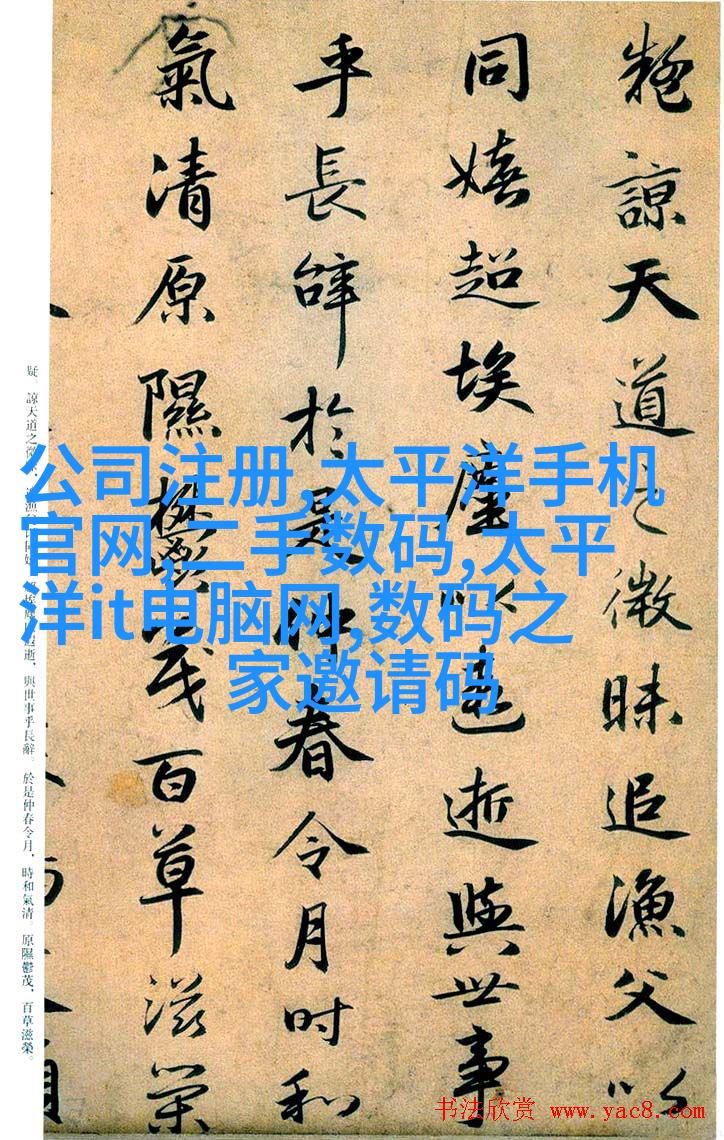 疑諒天道之微昧追漁父以
同嬉超埃塵以遐逝與世事
乎長辭於是仲春令月時和
氣清原隰鬱茂百草滋榮
疑。諒天道之微逝，與世事乎長辭。於是仲春令月，時和氣清。原隰鬱茂，百草滋榮。
公司注册,太平洋手机
官网,二手数码,太平
洋it电脑网,数码之
家邀请码
书法欣赏 www.yac8.com